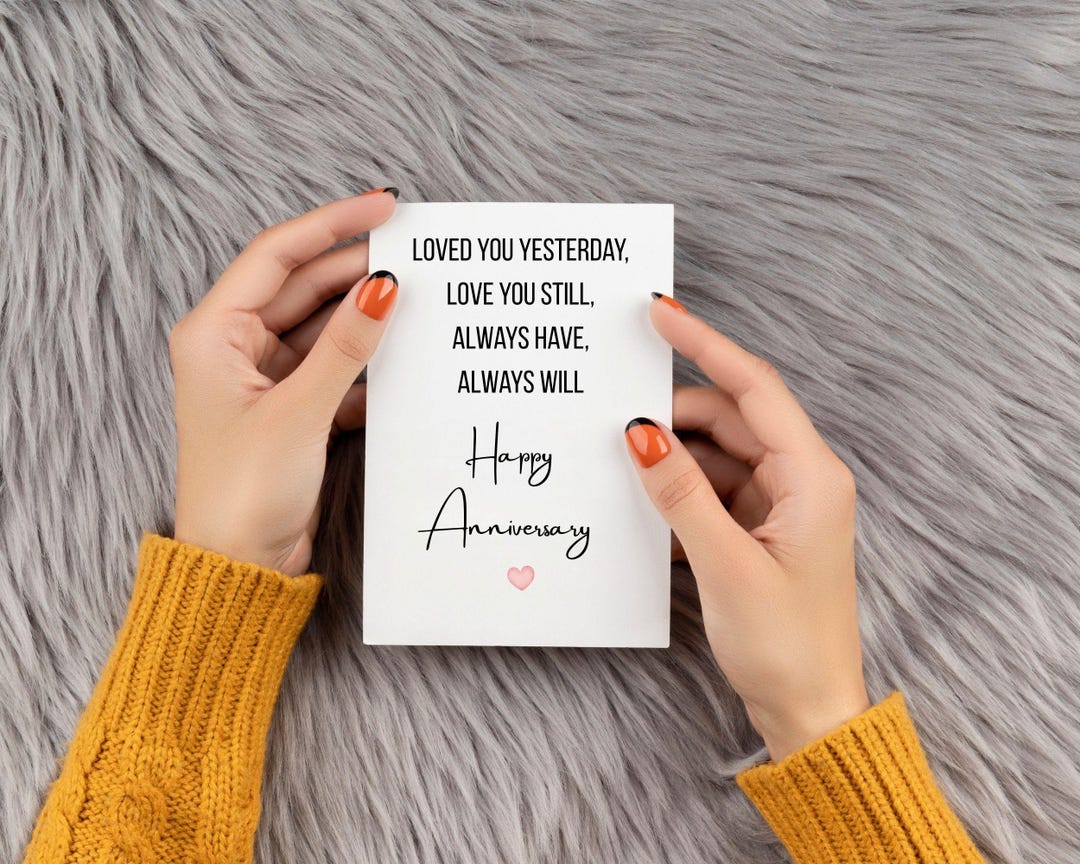 LOVED YOU YESTERDAY,
LOVE YOU STILL,
ALWAYS HAVE,
ALWAYS WILL
Happy
Anniversary